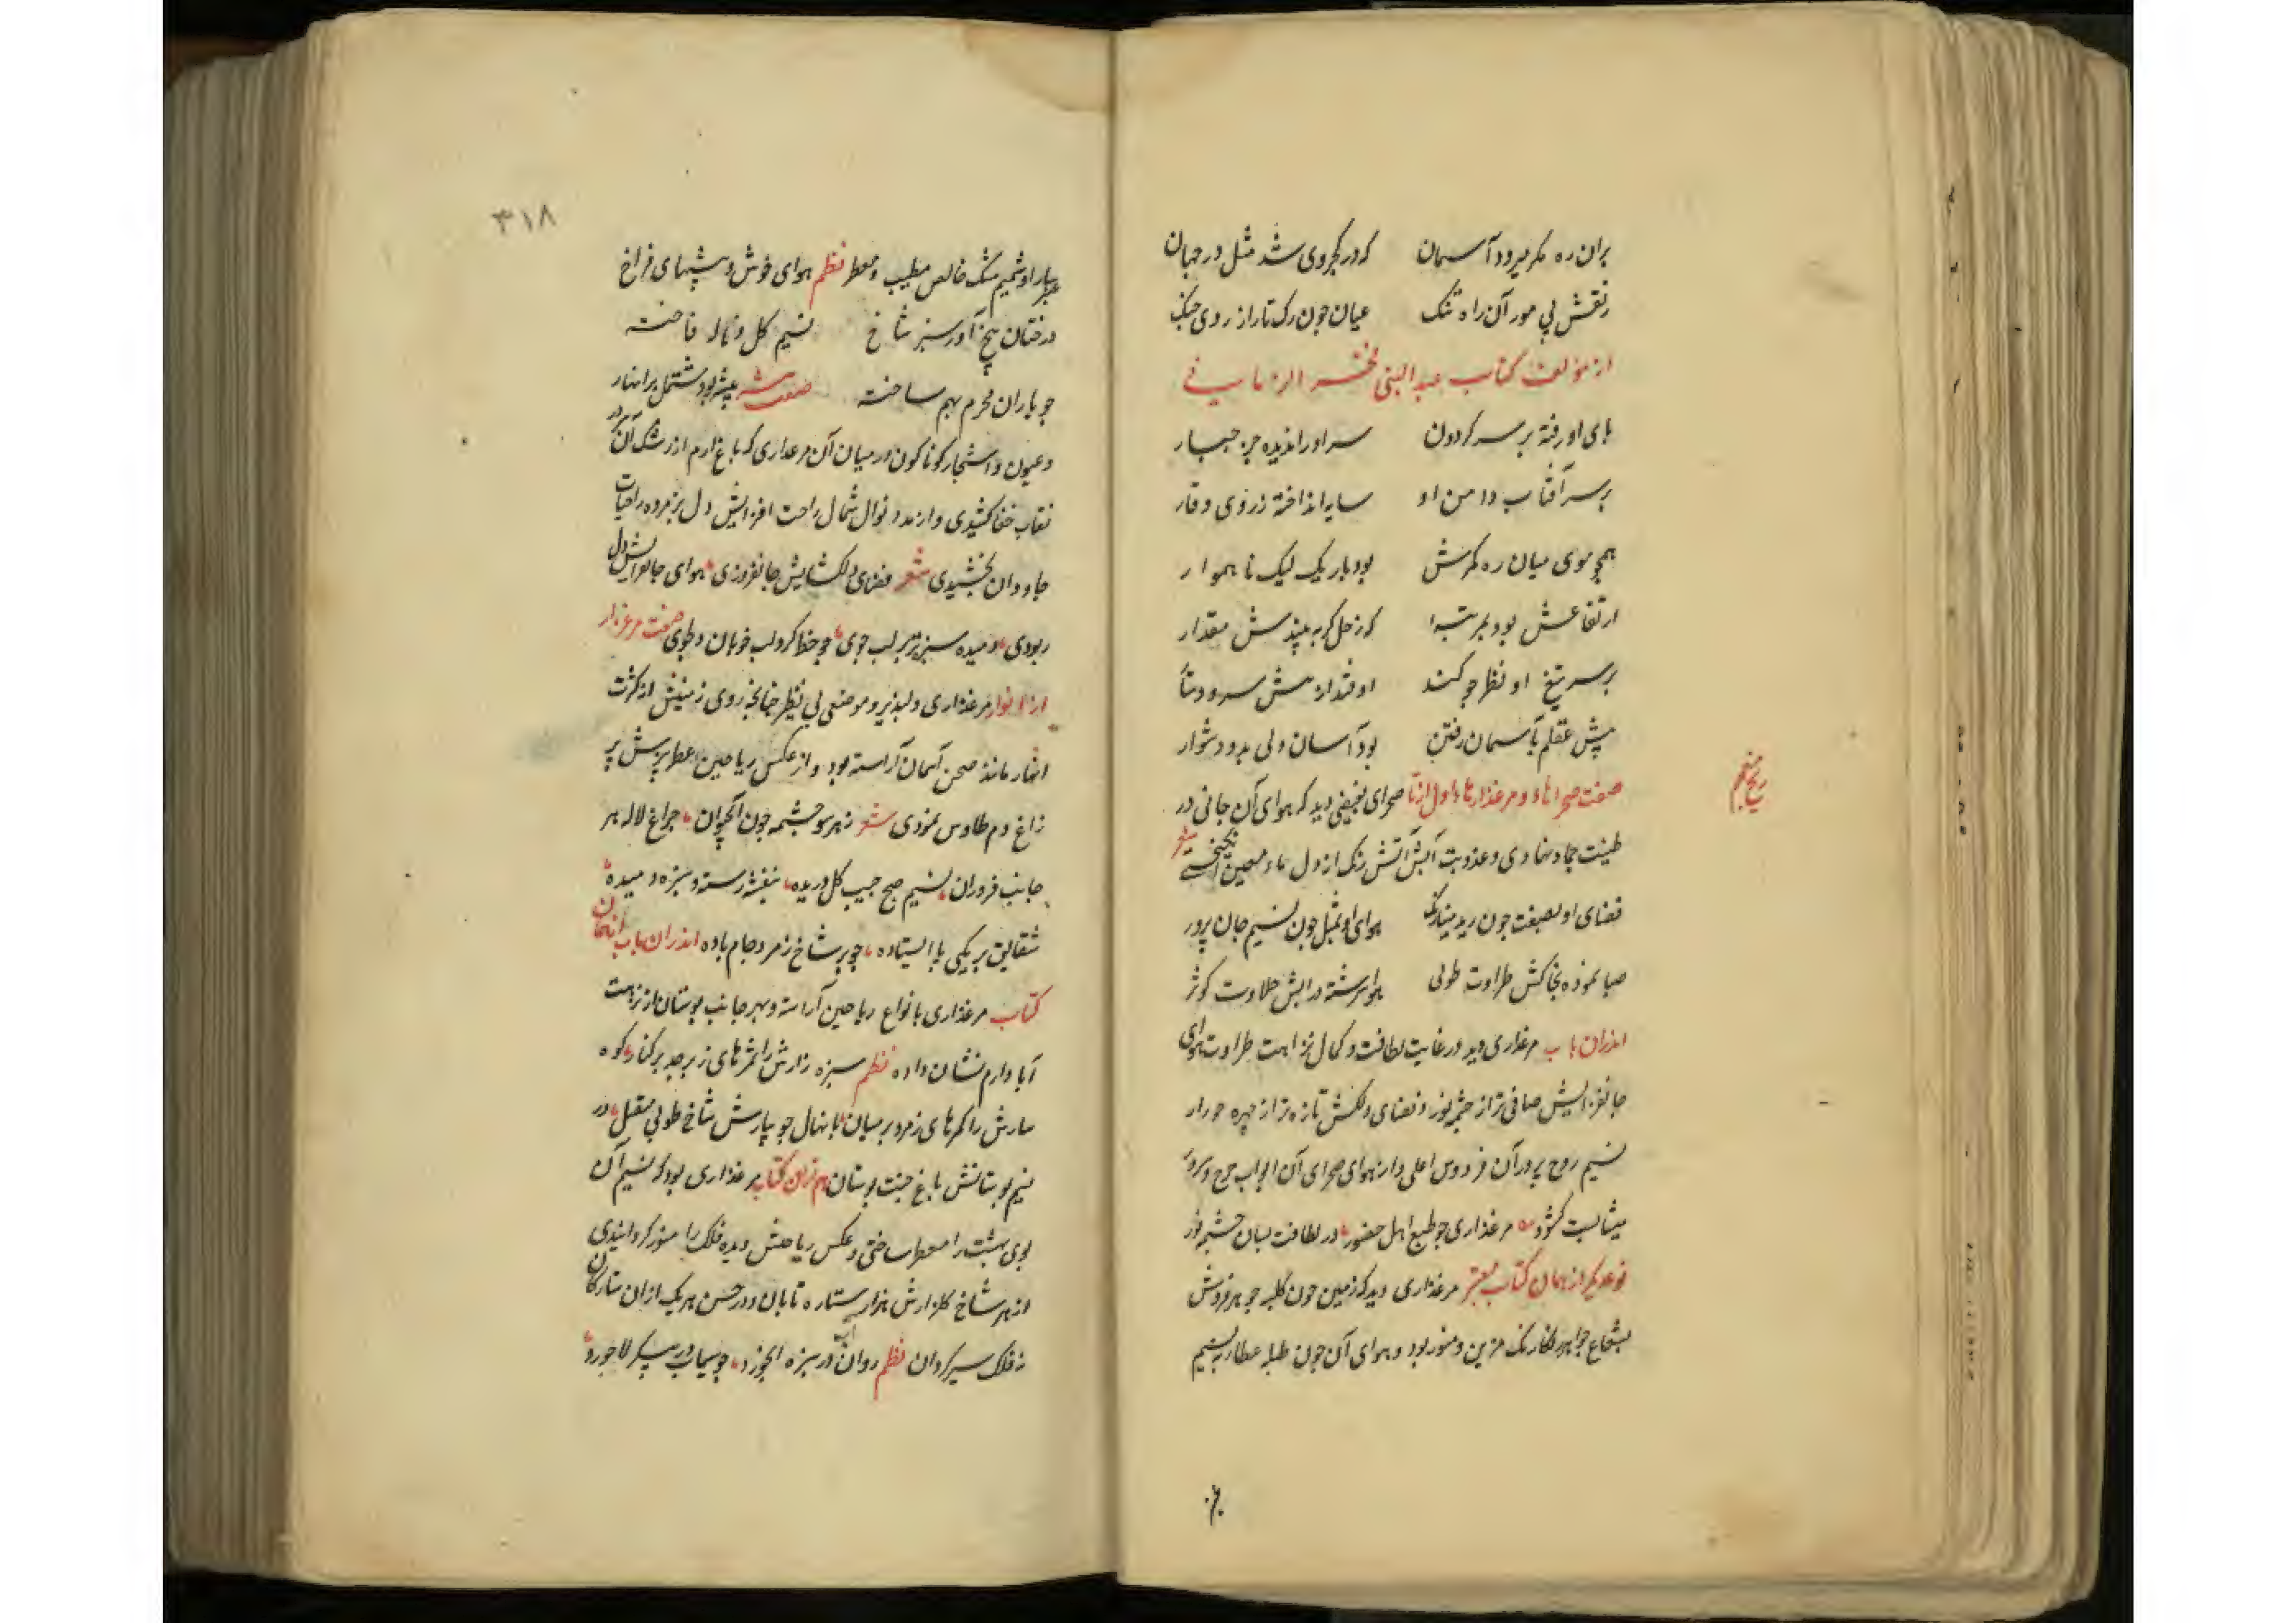 بران ره مگر میرود آسمان که در کجروی شد مثل در جهان
ز نقش پی مور آن راه تنک عیان چون رک تار از روی چنک
از مؤلف کتاب عبد النبی فخر الزمانی
پای او رفته بر سر کردون سر او را ندیده جز جبار
بر سر آفتاب دامن او سایه انداخته ز روی وقار
همچو موی میان ره کمرش بود باریک لیک نا هموار
ارتفاعش بود بمرتبهٔ که زحل کر به بیندش مقدار
بر سر تیغ او نظر چو کند اوفتد از سرش سر و دستار
پیش عقلم بآسمان رفتن بود آسان ولی بدو دشوار
صفت صحراها و مرغزارها اول از صحرای نجیفی دید که هوای آن جانی در
طینت جماد نهادی و عذوبت آبش آتش رنک از دل ماء معین انکیختی شعر
فضای او بصفت چون بهوای او بمثل چون نسیم جان پرور
صبا نموده بخاکش طراوت طوبی هوا سرشته در آبش حلاوت کوثر
اندران باب مرغزاری دید در غایت لطافت و کمال نزاهت طراوت هوای
جانفزایش صافی تر از چشمه نور و فضای دلکش تازه تر از چهره حور از
نسیم روح پرور آن فردوس اعلی و از هوای صحرای آن ابواب
کشود مرغزاری چو طبع اهل حضور در لطافت بسان چشمه نور
نوعدیگر از همان کتاب معتبر مرغزاری دید که زمین چون کلبه جوهر فروش
بشعاع جواهر رنک مزین و منور بود و هوای آن چون طبله عطار به نسیم
۳۱۸
عنبر بار او شمیم مشک خالص مطیب و معطر نظم هوای خوش و بیشهای فراخ
درختان بیخ آور سبز شاخ نسیم کل و ناله فاخته
چو یاران محرم بهم ساخته صفت بیشه بیشه بود مشتمل بر انهار
و عیون و اشجار کوناکون در میان آن مرغزاری که باغ ارم از رشک آن سر در
نقاب خفا کشیدی و از مدد نوال شمال راحت افزایش دل پژمرده راحیات
جاودان بخشیدی شعر فضای دلکشایش جانفروزی هوای جانفزایش دل
ربودی دمیده سبزه تر بر لب جوی چو خط کرد لب خوبان دلجوی صفت مرغزار
از انوار مرغزاری دلپذیر و موضعی بی نظیر چنانچه روی زمینش از کثرت
انهار مانند صحن آسمان آراسته بود و از عکس ریاحین عطر بیزش پر
زاغ دم طاوس نمودی شعر ز هر سو چشمه چون آب حیوان چراغ لاله هر
جانب فروزان نسیم صبح جیب کل دریده بنفشه رسته و سبزه دمیده
شقایق بر یکی پا ایستاده چو بر شاخ زمرد جام باده اندران باب از همان
کتاب مرغزاری بانواع ریاحین آراسته و بهر جانب بوستان از نزهت
آباد ارم نشان داده نظم سبزه زارش را ثمرهای زبرجد بر کنار کوه
سارش را کمرهای زمرد بر میان با نهال جویبارش شاخ طوبی منفعل در
نیم بوستانش باغ جنت بوستان هم ازان کتاب مرغزاری بود که نسیم آن
بوی بهشت را معطر ساختی و عکس ریاحینش دیده فلک را منور کردانیدی
از هر شاخ کلزارش هزار ستاره تابان و در حسن هر یک از ان ستارکان
نه فلک سرکردان نظم روان آب در سبزه چو سیماب در پیکر لاجورد